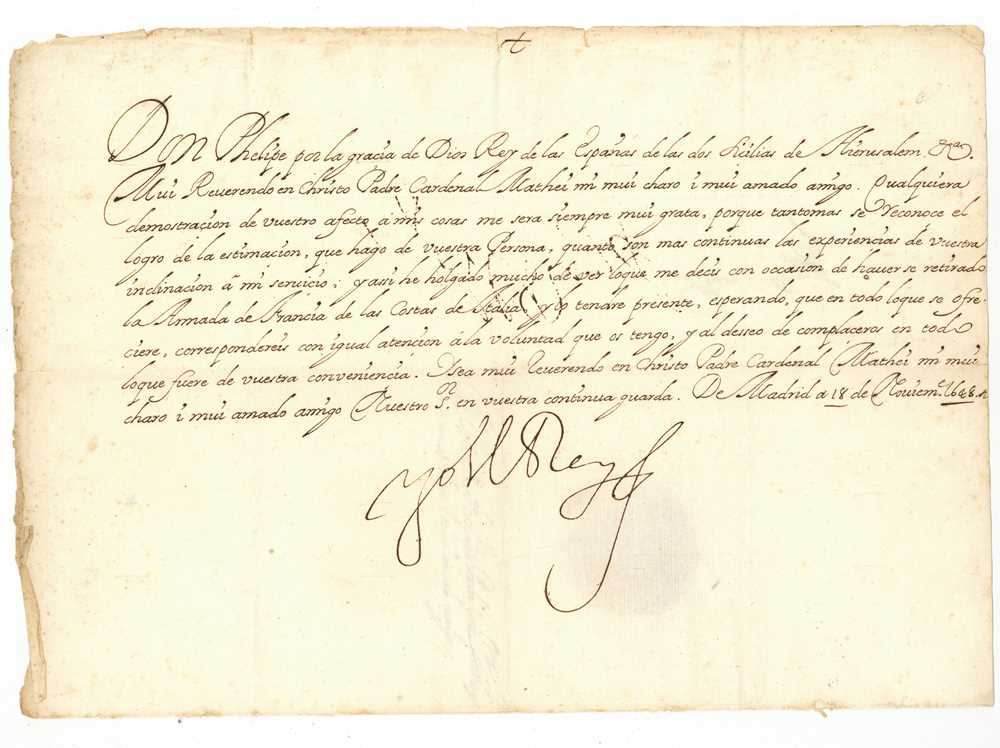 Don Phelipe por la gracia de Dios Rey de las Españas de las dos Sicilias de Hierusalem &ca.
Mui Reverendo en Christo Padre Cardenal Mathei mi mui charo i mui amado amigo. Qualquiera
demostracion de vuestro afecto a mis cosas me sera siempre mui grata, porque tanto mas se reconoce el
logro de la estimacion, que hago de vuestra Persona, quanto son mas continuas las experiencias de vuestra
inclinacion â mi servicio; y asi he holgado mucho de ver loque me decis con occasion de haverse retirado
la Armada de Francia de las Costas de Italia, y lo tendre presente, esperando, que en todo loque se ofre-
ciere, correspondereis con igual atencion à la voluntad que os tengo, y al desseo de complaceros en todo
loque fuere de vuestra conveniencia. I sea mui Reverendo en Christo Padre Cardenal Mathei mi mui
charo i mui amado amigo Nuestro Sr. en vuestra continua guarda. De Madrid a 18 de Noviem.e 1648
yo el Rey